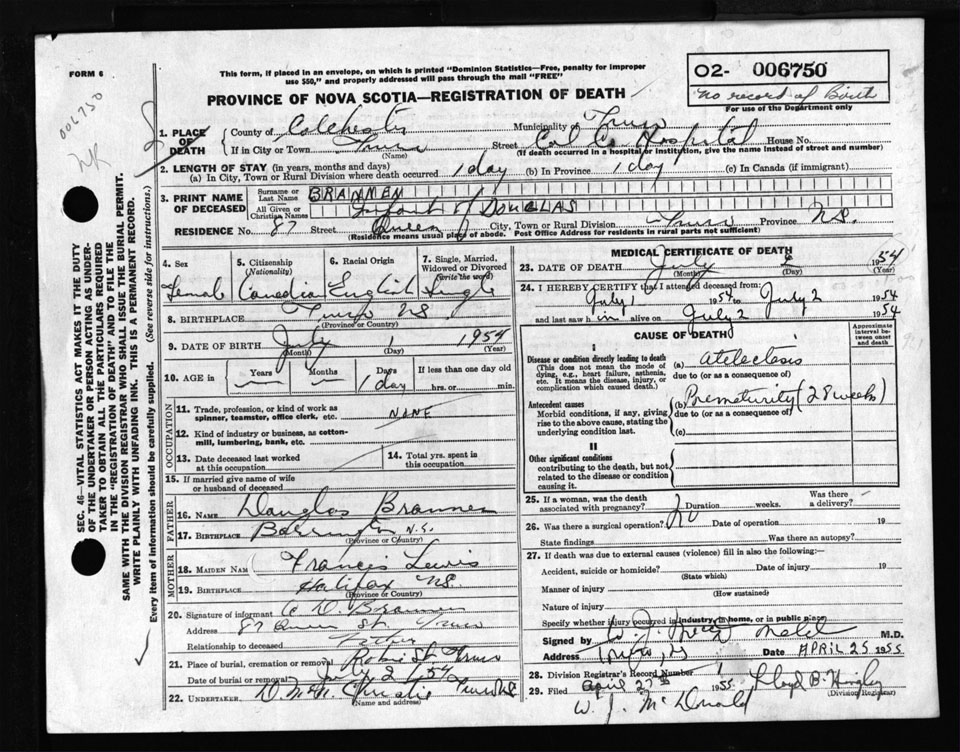 FORM 6
This form, if placed in an envelope, on which is printed "Dominion Statistics—Free, penalty for improper
use $50," and properly addressed will pass through the mail "FREE"
O2- 006750
No record of Birth
For use of the Department only
006750
PROVINCE OF NOVA SCOTIA—REGISTRATION OF DEATH
1. PLACE OF DEATH
County of Colchester Municipality of Truro
If in City or Town Truro Street Col Co Hospital House No.
(Name) (If death occurred in a hospital or institution, give the name instead of street and number)
2. LENGTH OF STAY (in years, months and days)
(a) In City, Town or Rural Division where death occurred 1 day (b) In Province 1 day (c) In Canada (if immigrant)
3. PRINT NAME OF DECEASED
Surname or Last Name BRANNEN
All Given or Christian Names Infant of DOUGLAS
RESIDENCE No. 87 Street Queen City, Town or Rural Division Truro Province N.S.
(Residence means usual place of abode. Post Office Address for residents in rural parts not sufficient)
4. Sex Female
5. Citizenship (Nationality) Canadian
6. Racial Origin English
7. Single, Married, Widowed or Divorced (write the word) Single
8. BIRTHPLACE Truro NS.
(Province or Country)
9. DATE OF BIRTH July 1 1954
(Month) (Day) (Year)
10. AGE in Years Months Days 1 day If less than one day old hrs. or min.
OCCUPATION
11. Trade, profession, or kind of work as spinner, teamster, office clerk, etc. NONE
12. Kind of industry or business, as cotton-mill, lumbering, bank, etc.
13. Date deceased last worked at this occupation
14. Total yrs. spent in this occupation
15. If married give name of wife or husband of deceased
FATHER
16. NAME Douglas Brannen
17. BIRTHPLACE Barrington N.S.
(Province or Country)
MOTHER
18. MAIDEN NAM Frances Lewis
19. BIRTHPLACE Halifax NS.
(Province or Country)
20. Signature of informant C D. Brannen
Address 87 Queen St. Truro
Relationship to deceased Father
21. Place of burial, cremation or removal Robie St Truro
Date of burial or removal July 2 1954
22. UNDERTAKER Christie Truro NS
(Name and address)
MEDICAL CERTIFICATE OF DEATH
23. DATE OF DEATH July 2 1954
(Month) (Day) (Year)
24. I HEREBY CERTIFY that I attended deceased from:
July 1 1954 to July 2 1954
and last saw h in alive on July 2 1954
CAUSE OF DEATH
Approximate interval between onset and death
I
Disease or condition directly leading to death
(This does not mean the mode of dying, e.g., heart failure, asthenia, etc. It means the disease, injury, or complication which caused death.)
(a) atelectasis
due to (or as a consequence of)
Antecedent causes
Morbid conditions, if any, giving rise to the above cause, stating the underlying condition last.
(b) Prematurity (28 weeks)
due to (or as a consequence of)
(c)
II
Other significant conditions
contributing to the death, but not related to the disease or condition causing it.
25. If a woman, was the death associated with pregnancy? Duration weeks. Was there a delivery?
26. Was there a surgical operation? No Date of operation 19
State findings Was there an autopsy?
27. If death was due to external causes (violence) fill in also the following:—
Accident, suicide or homicide? Date of injury 19
(State which)
Manner of injury
(How sustained)
Nature of injury
Specify whether injury occurred in industry, in home, or in public place
Signed by M.D.
Address Truro, NS Date APRIL 25 1955
28. Division Registrar's Record Number 1
29. Filed April 27th 1955 Lloyd B. Hingley
(Division Registrar)
W. J. McDonald
SEC. 46—VITAL STATISTICS ACT MAKES IT THE DUTY
OF THE UNDERTAKER OR PERSON ACTING AS UNDER-
TAKER TO OBTAIN ALL THE PARTICULARS REQUIRED
IN THE "REGISTRATION OF DEATH" AND TO FILE THE
SAME WITH THE DIVISION REGISTRAR WHO SHALL ISSUE THE BURIAL PERMIT.
WRITE PLAINLY WITH UNFADING INK. THIS IS A PERMANENT RECORD.
Every item of information should be carefully supplied. (See reverse side for instructions.)